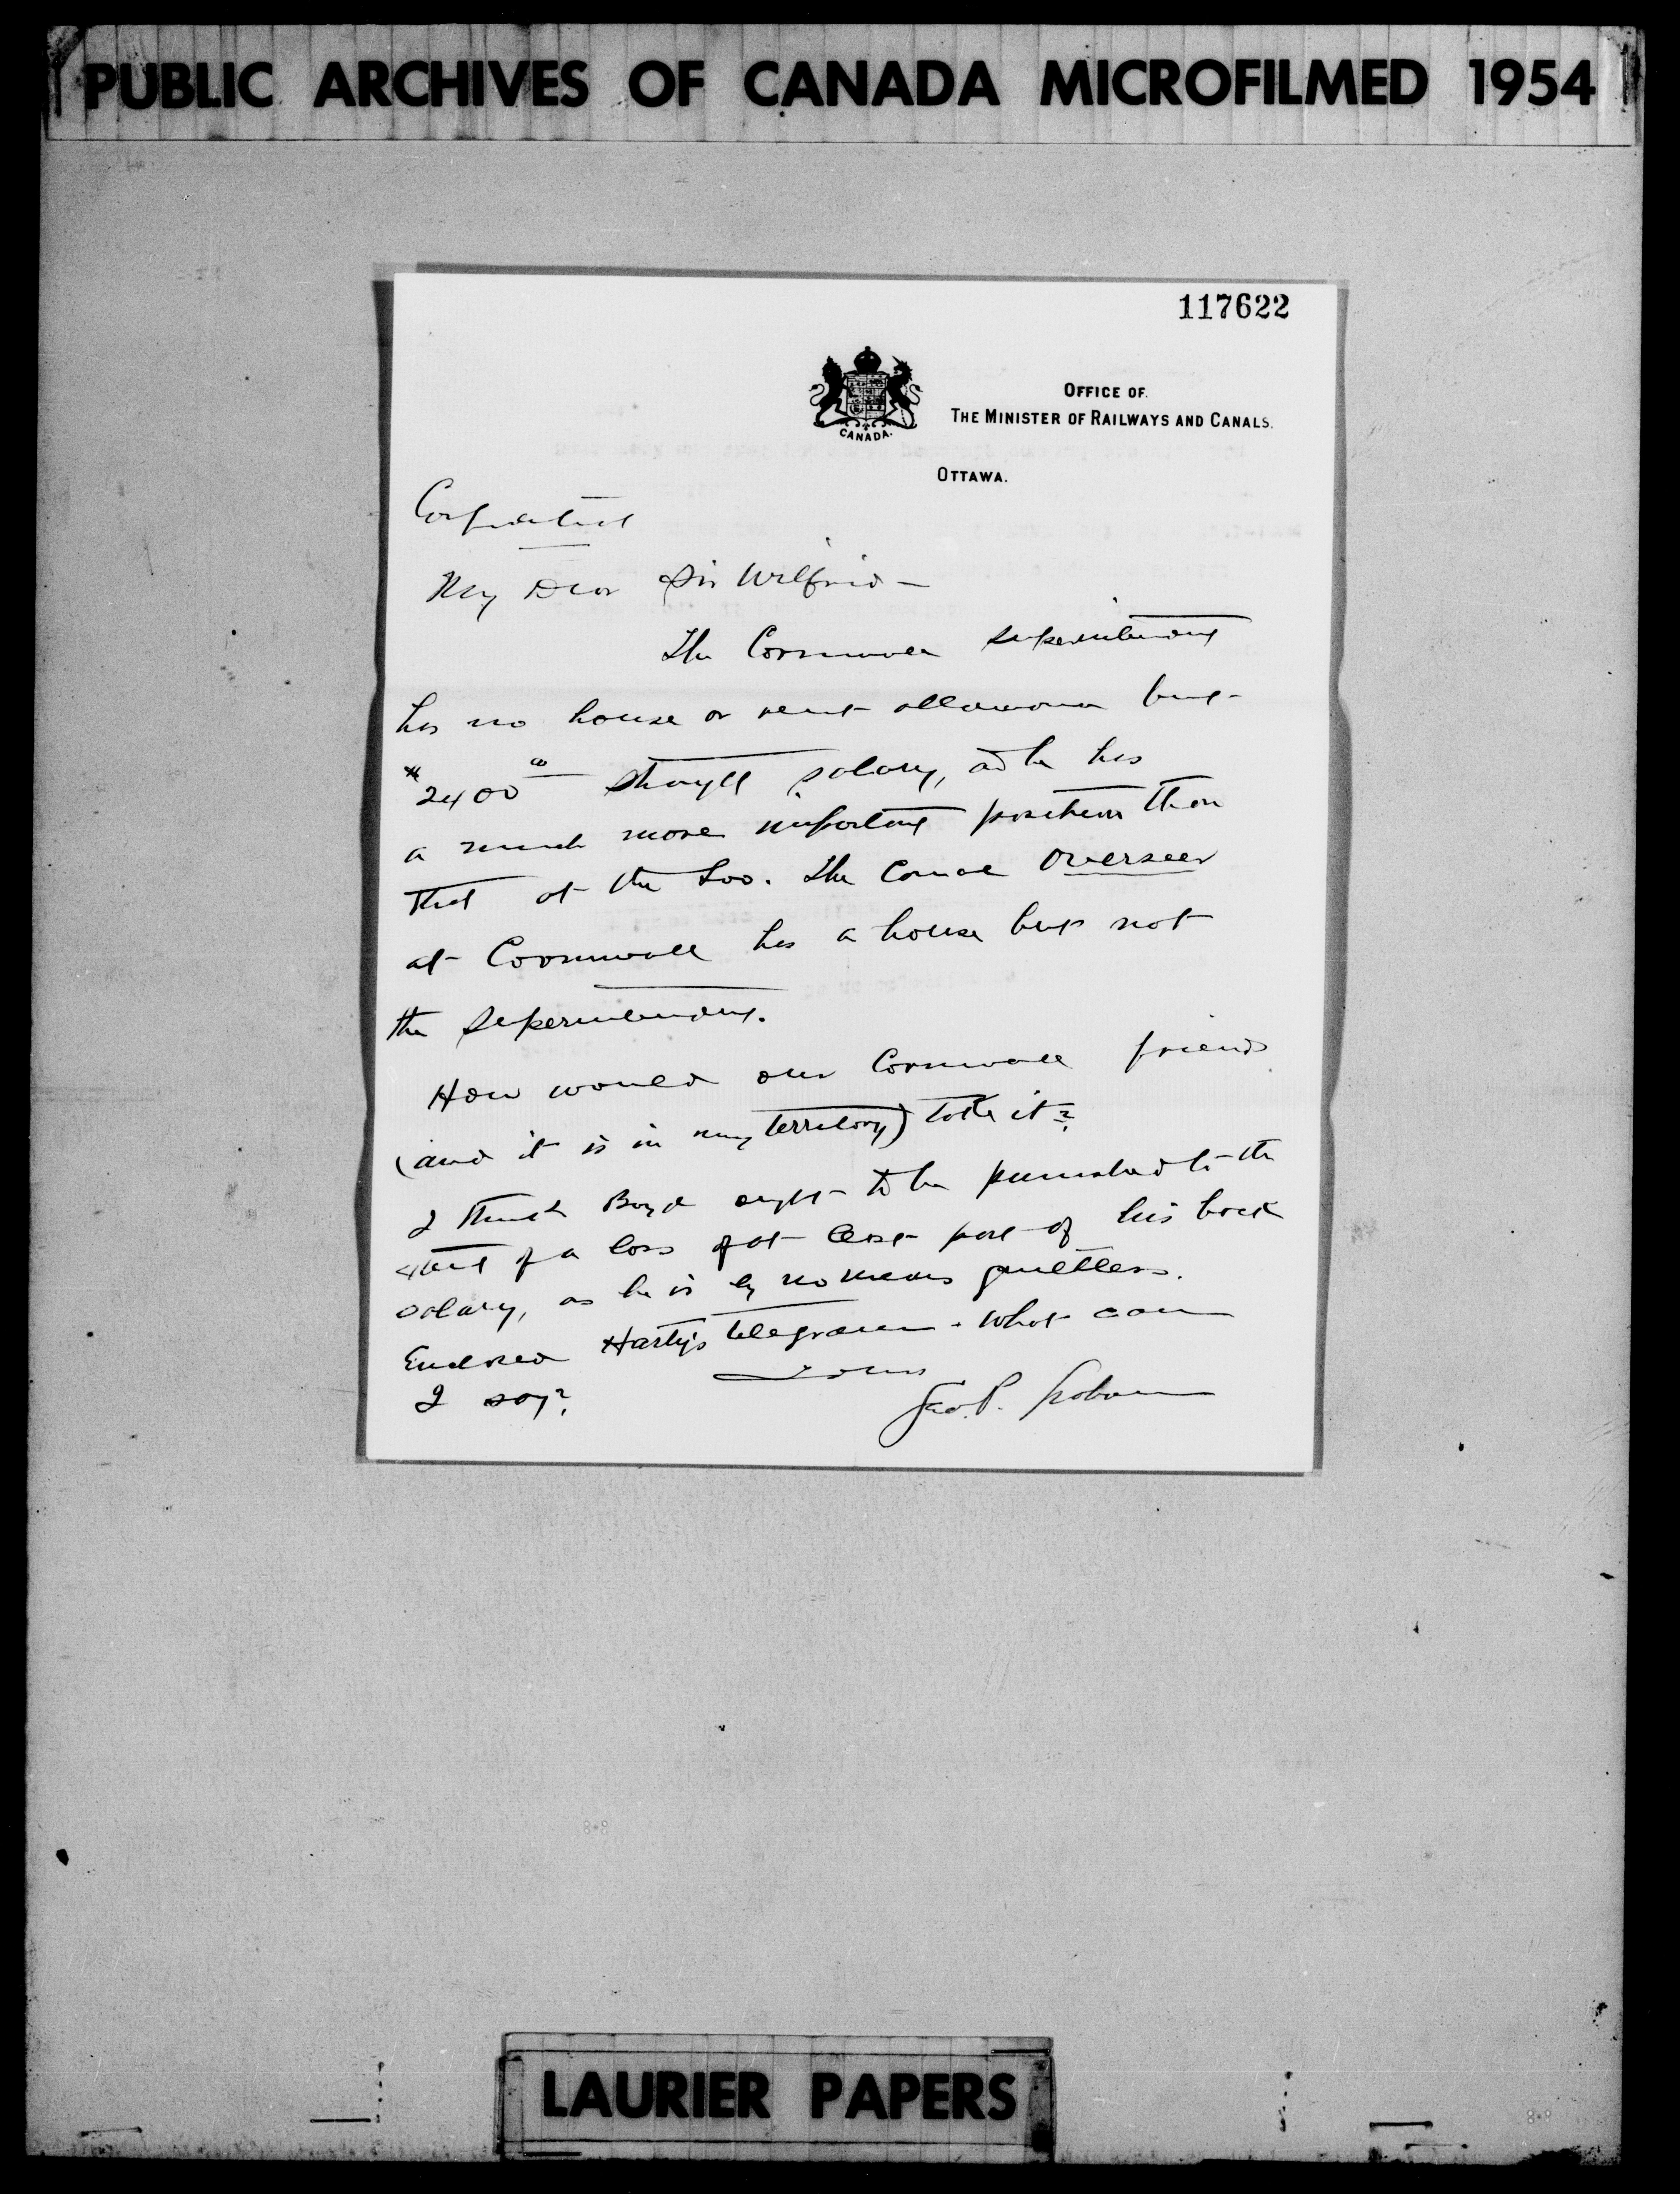 PUBLIC ARCHIVES OF CANADA MICROFILMED 1954
117622
OFFICE OF
THE MINISTER OF RAILWAYS AND CANALS.
CANADA.
OTTAWA.
Confidential
My Dear Sir Wilfrid –
The Cornwall Superintendent
has no house or rent allowance but
$2400 00 straight salary, and he has
a much more important position than
that at the Soo. The Canal Overseer
at Cornwall has a house but not
the Superintendent.
How would our Cornwall friends
(and it is in my territory) take it?
I think Boyd ought to be punished to the
extent of a loss of at least part of his back
salary, as he is by no means guiltless.
Enclosed Harty's telegram. What can
I say?
Yours
Geo. P. Graham
LAURIER PAPERS